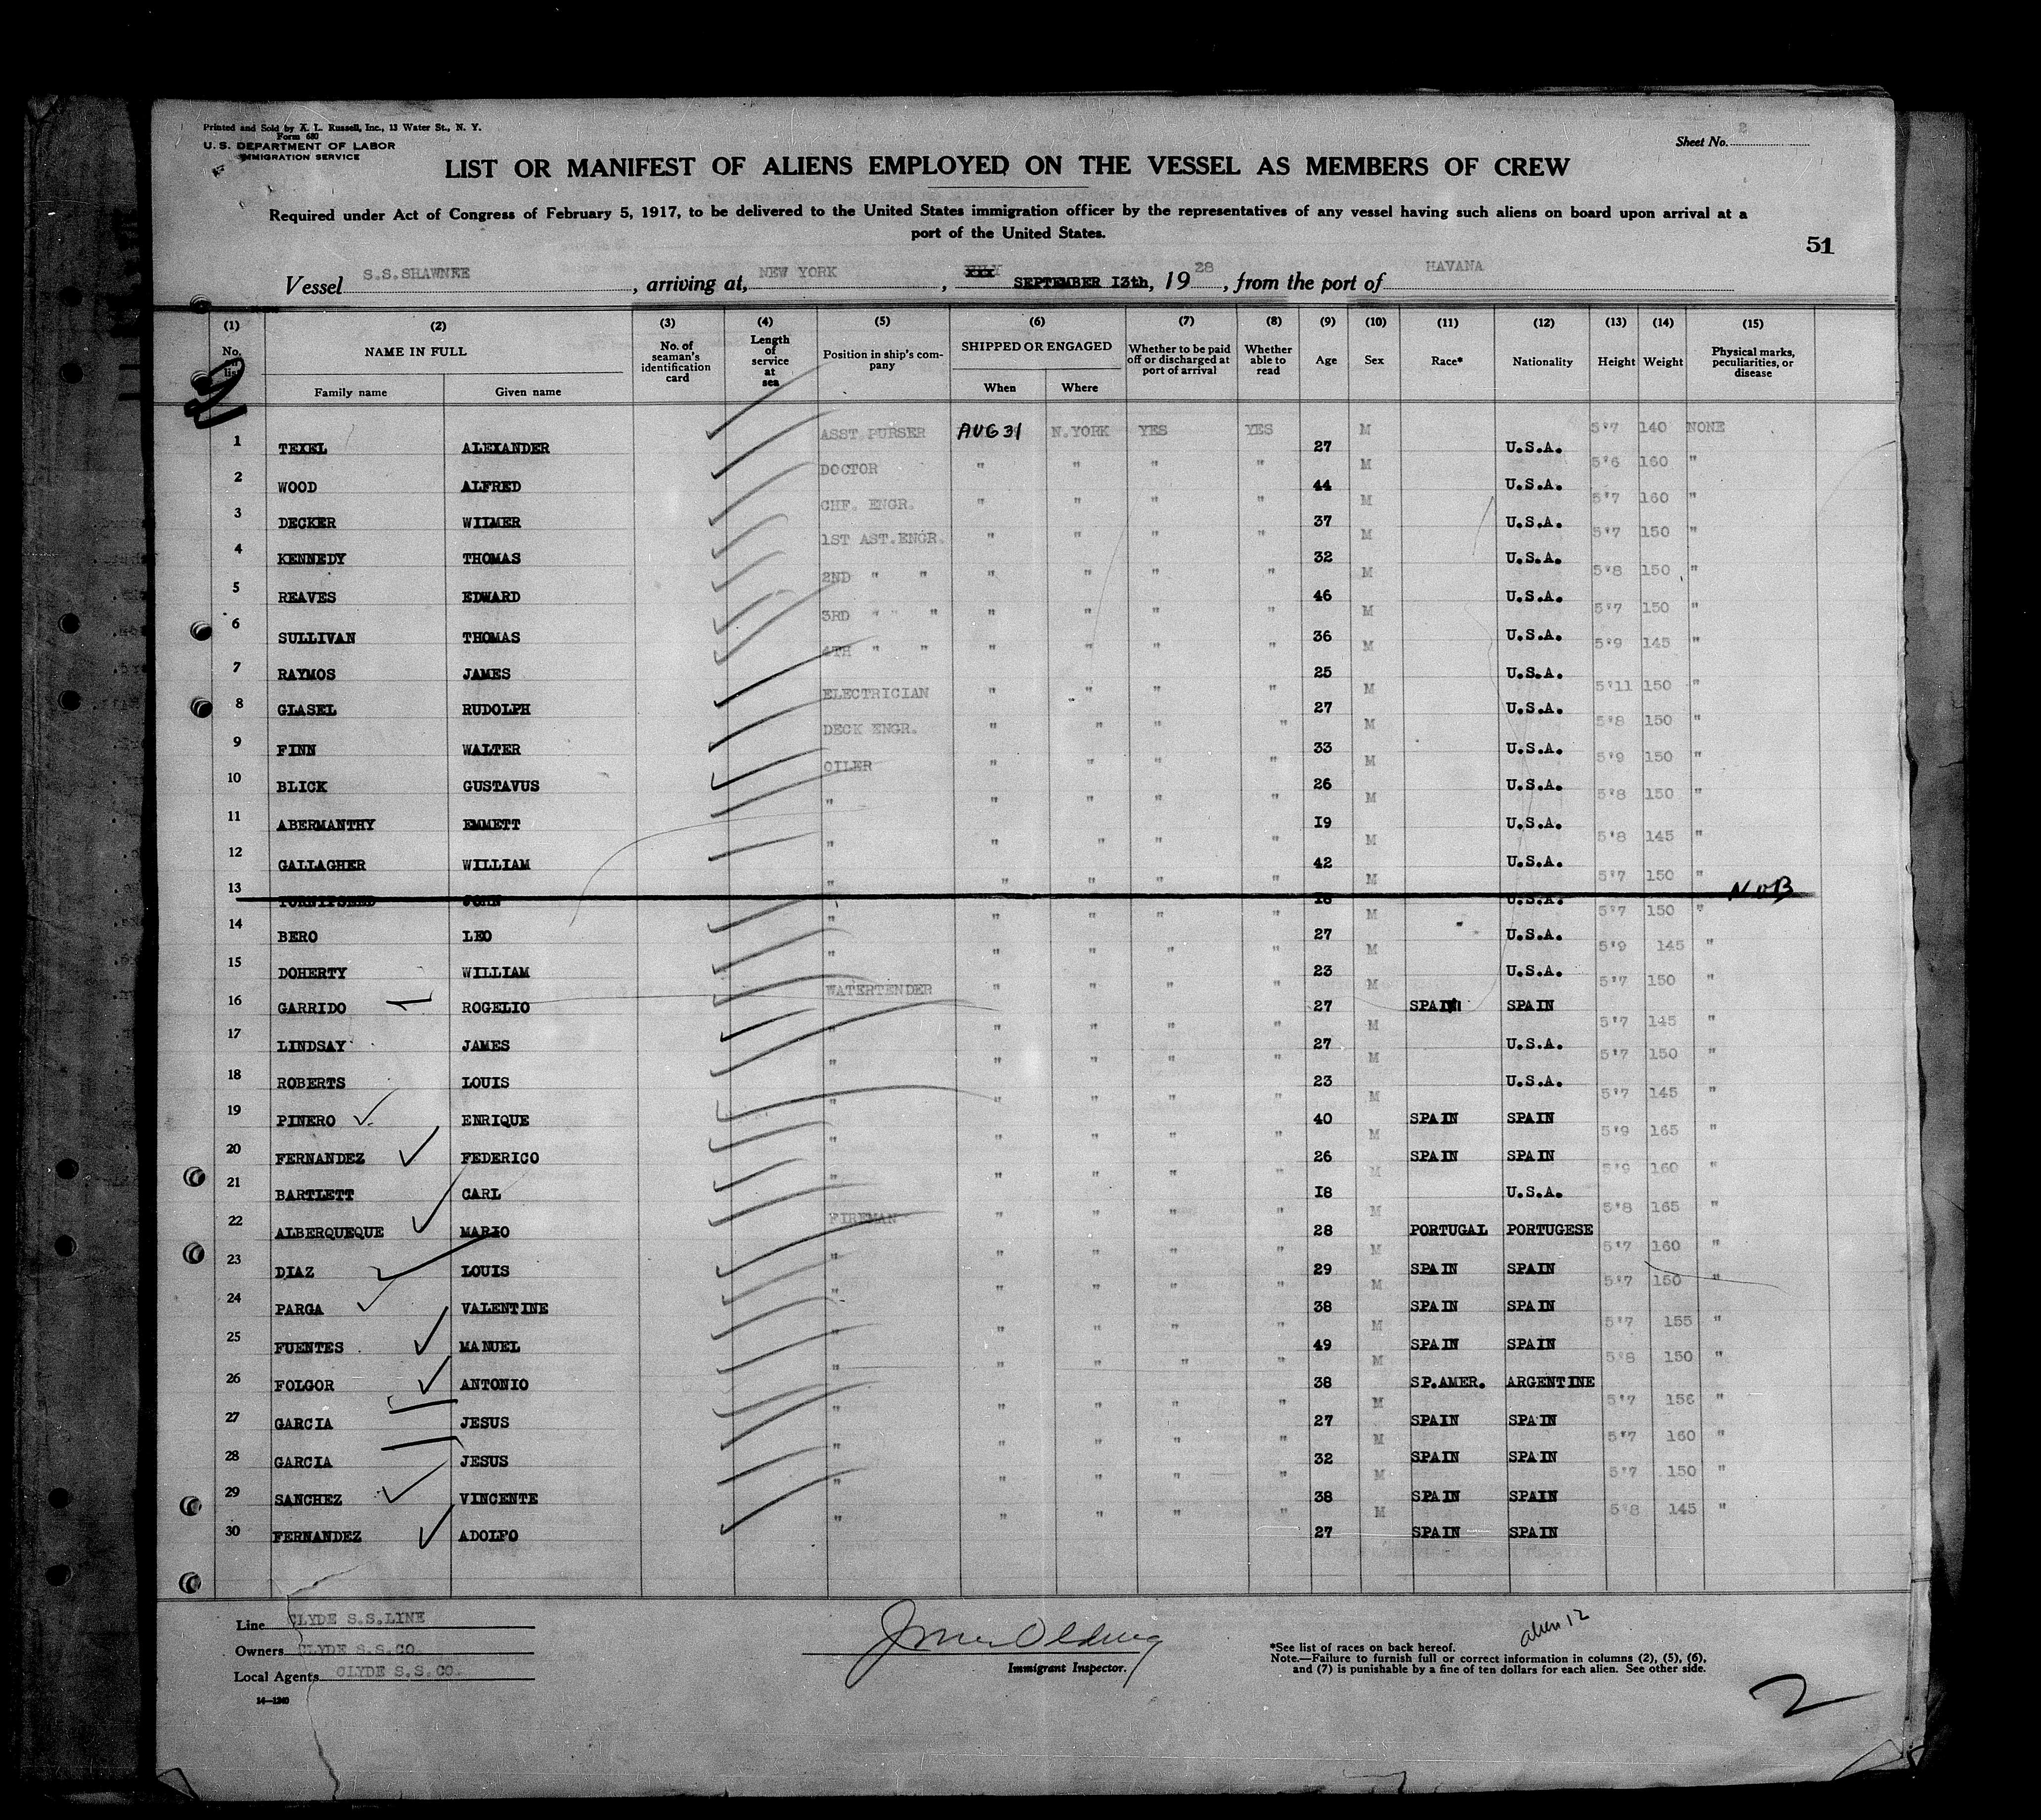 Printed and Sold by K. L. Russell, Inc., 13 Water St., N. Y.
Form 680
U. S. DEPARTMENT OF LABOR
IMMIGRATION SERVICE
Sheet No. 2
LIST OR MANIFEST OF ALIENS EMPLOYED ON THE VESSEL AS MEMBERS OF CREW
Required under Act of Congress of February 5, 1917, to be delivered to the United States immigration officer by the representatives of any vessel having such aliens on board upon arrival at a
port of the United States.
51
Vessel S.S.SHAWNEE, arriving at, NEW YORK, SEPTEMBER 13th, 1928, from the port of HAVANA
(1) (2) (3) (4) (5) (6) (7) (8) (9) (10) (11) (12) (13) (14) (15)
No. list NAME IN FULL Family name Given name No. of seaman's identification card Length of service at sea Position in ship's company SHIPPED OR ENGAGED When Where Whether to be paid off or discharged at port of arrival Whether able to read Age Sex Race* Nationality Height Weight Physical marks, peculiarities, or disease
1 TEXEL ALEXANDER ASST.PURSER AUG 31 N.YORK YES YES 27 M U.S.A. 5'7 140 NONE
2 WOOD ALFRED DOCTOR " " " " 44 M U.S.A. 5'6 160 "
3 DECKER WILMER CHF. ENGR. " " " " 37 M U.S.A. 5'7 160 "
4 KENNEDY THOMAS 1ST AST.ENGR. " " " " 32 M U.S.A. 5'7 150 "
5 REAVES EDWARD 2ND " " " " " " 46 M U.S.A. 5'8 150 "
6 SULLIVAN THOMAS 3RD " " " " " " " 36 M U.S.A. 5'7 150 "
7 RAYMOS JAMES 4TH " " " " " " 25 M U.S.A. 5'9 145 "
8 GLASEL RUDOLPH ELECTRICIAN " " " " 27 M U.S.A. 5'11 150 "
9 FINN WALTER DECK ENGR. " " " " 33 M U.S.A. 5'8 150 "
10 BLICK GUSTAVUS OILER " " " " 26 M U.S.A. 5'9 150 "
11 ABERMANTHY EMMETT " " " " " 19 M U.S.A. 5'8 150 "
12 GALLAGHER WILLIAM " " " " " 42 M U.S.A. 5'8 145 "
13 JOHN " " " " " 18 M U.S.A. 5'7 150 " NOB
14 BERO LEO " " " " " 27 M U.S.A. 5'7 150 "
15 DOHERTY WILLIAM " " " " " 23 M U.S.A. 5'9 145 "
16 GARRIDO ROGELIO WATERTENDER " " " " 27 M SPAIN SPAIN 5'7 150 "
17 LINDSAY JAMES " " " " " 27 M U.S.A. 5'7 145 "
18 ROBERTS LOUIS " " " " " 23 M U.S.A. 5'7 150 "
19 PINERO ENRIQUE " " " " " 40 M SPAIN SPAIN 5'7 145 "
20 FERNANDEZ FEDERICO " " " " " 26 M SPAIN SPAIN 5'9 165 "
21 BARTLETT CARL " " " " " 18 M U.S.A. 5'9 160 "
22 ALBERQUEQUE MARIO FIREMAN " " " " 28 M PORTUGAL PORTUGESE 5'8 165 "
23 DIAZ LOUIS " " " " " 29 M SPAIN SPAIN 5'7 160 "
24 PARGA VALENTINE " " " " " 38 M SPAIN SPAIN 5'7 150 "
25 FUENTES MANUEL " " " " " 49 M SPAIN SPAIN 5'7 155 "
26 FOLGOR ANTONIO " " " " " 38 M SP.AMER. ARGENTINE 5'8 150 "
27 GARCIA JESUS " " " " " 27 M SPAIN SPAIN 5'7 156 "
28 GARCIA JESUS " " " " " 32 M SPAIN SPAIN 5'7 160 "
29 SANCHEZ VINCENTE " " " " " 38 M SPAIN SPAIN 5'7 150 "
30 FERNANDEZ ADOLFO " " " " " 27 M SPAIN SPAIN 5'8 145 "
Line CLYDE S.S.LINE
Owners CLYDE S.S.CO.
Local Agents CLYDE S.S.CO.
14—1240
Immigrant Inspector.
alien 12
*See list of races on back hereof.
Note.—Failure to furnish full or correct information in columns (2), (5), (6),
and (7) is punishable by a fine of ten dollars for each alien. See other side.
2